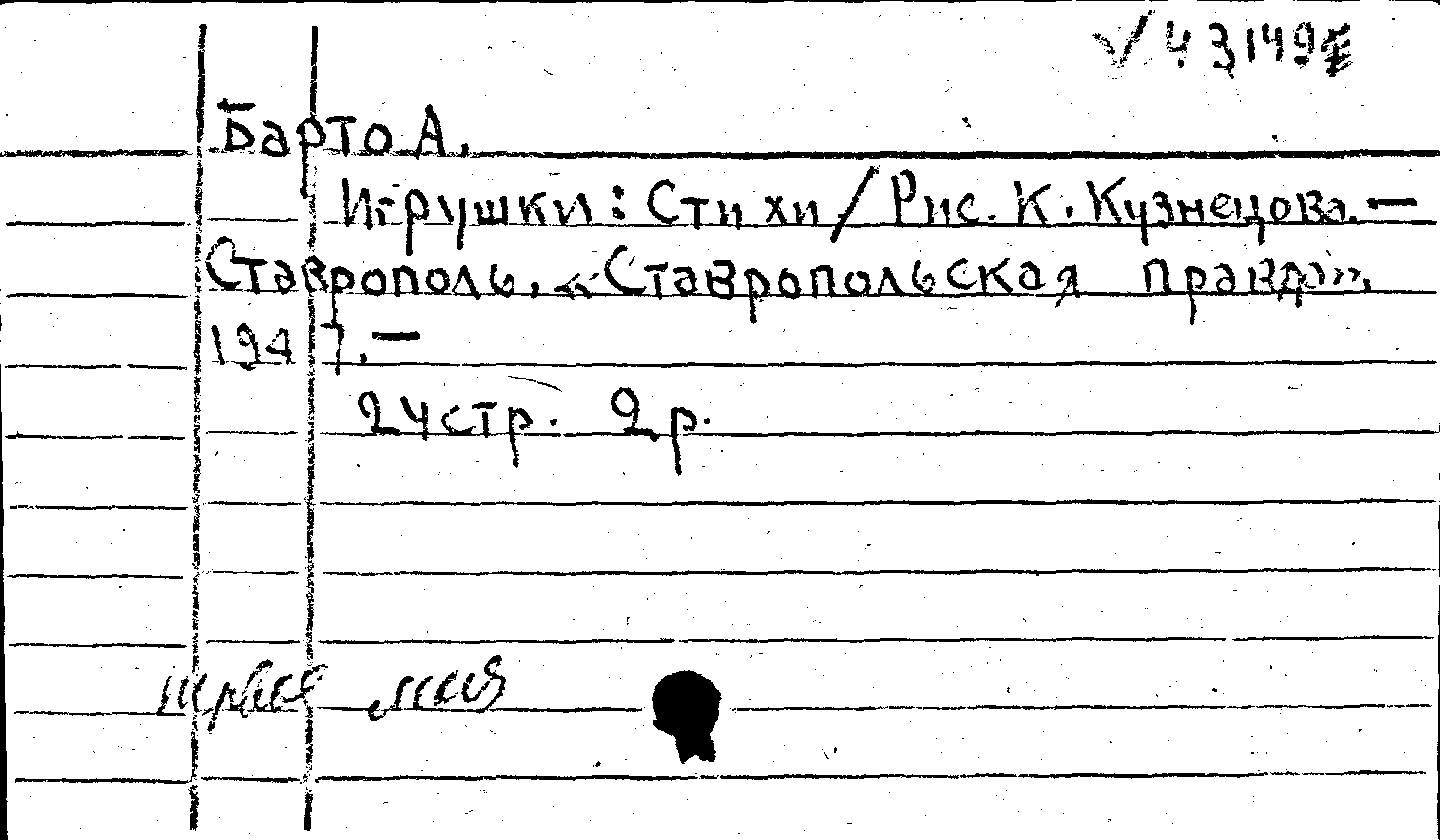 43149
Барто А.
Игрушки: Стихи / Рис. К. Кузнецова. —
Ставрополь, «Ставропольская правда»,
1947. —
24 стр. 2 р.